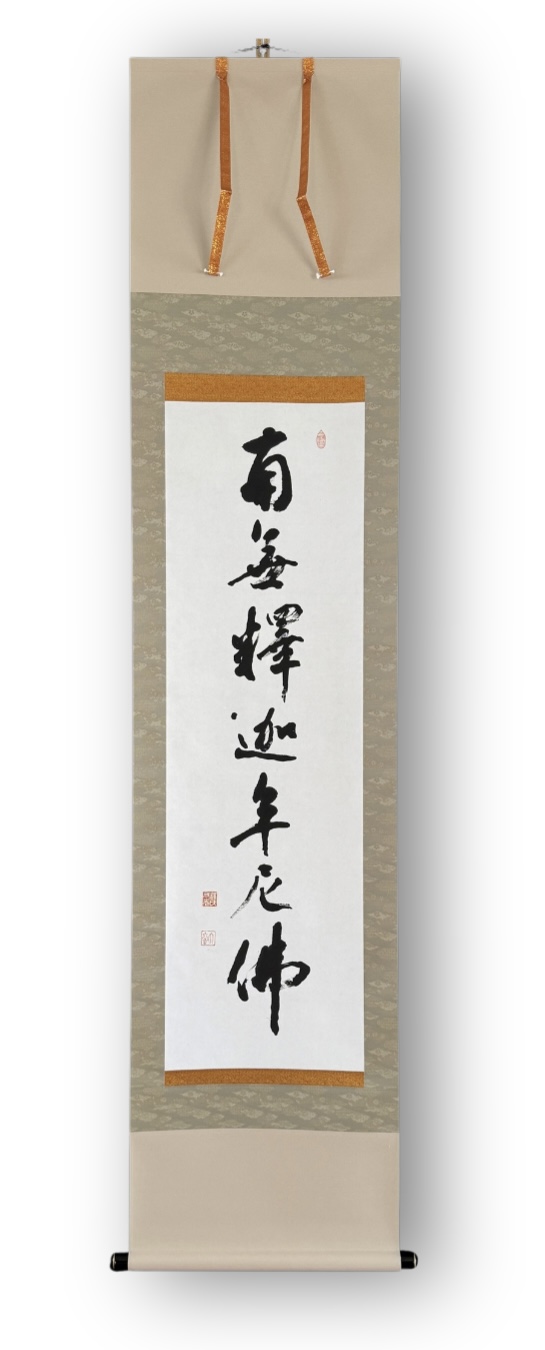 南無釋迦牟尼佛